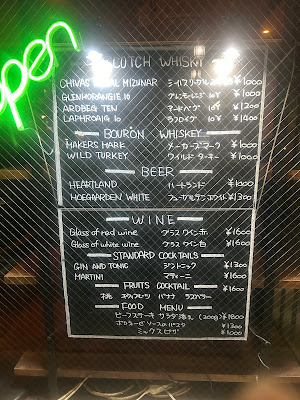 open
SCOTCH WHISKY
CHIVAS REGAL MIZUNAR シーバスリーガル ¥1000
GLENMORANGIE 10 グレンモーレンジ 10Y ¥1000
ARDBEG TEN アードベッグ 10Y ¥1200
LAPHROAIG 10 ラフロイグ 10Y ¥1400
BOURON WHISKEY
MAKERS MARK メーカーズマーク ¥1000
WILD TURKEY ワイルド ターキー ¥1000
BEER
HEARTLAND ハートランド ¥1000
HOEGARDEN WHITE ヒューガルデンホワイト ¥1300
WINE
Glass of red wine グラス ワイン 赤 ¥1600
Glass of white wine グラス ワイン 白 ¥1600
STANDARD COCKTAILS
GIN AND TONIC ジントニック ¥1300
MARTINI マティーニ ¥1600
FRUITS COCKTAIL ¥1600
桃 バナナ ラズベリー
FOOD MENU
ビーフステーキ サラダ (200g) ¥1800
ボロネーゼ ソースのパスタ ¥1300
ミックスピザ ¥1000